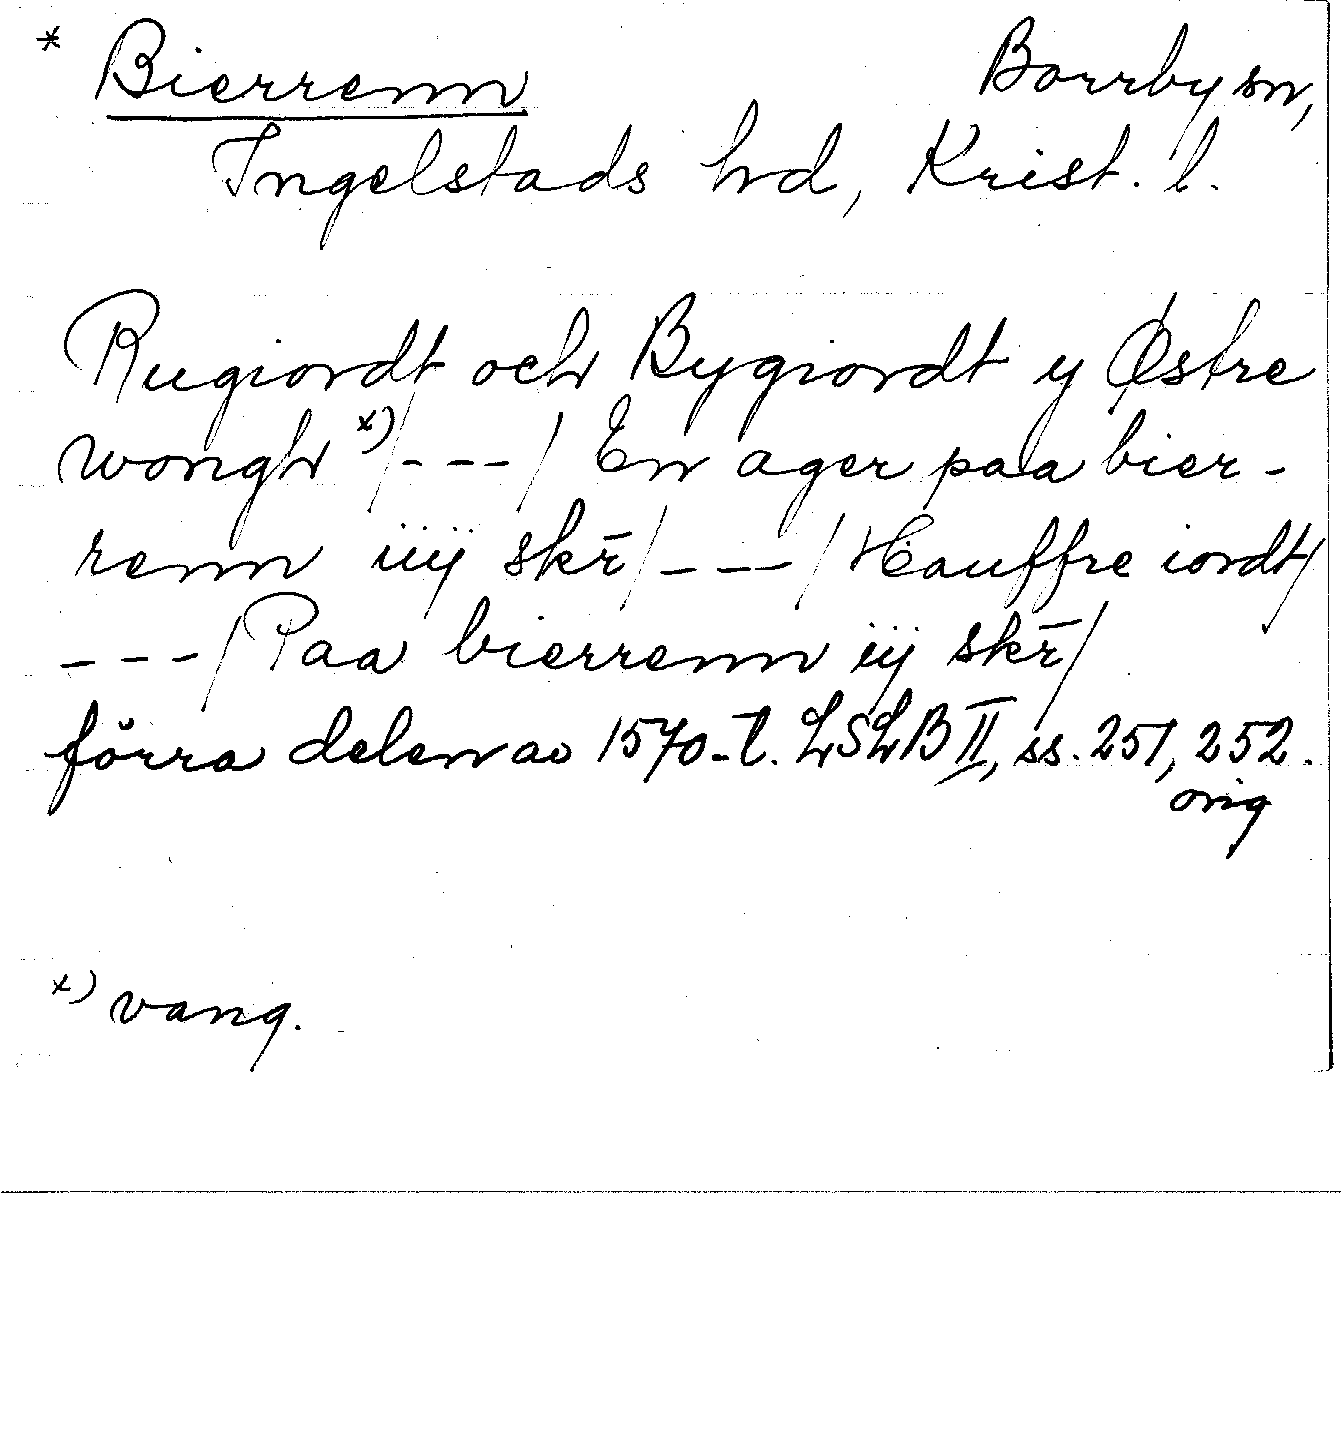 * Bierrenn Borrby sn,
Ingelstads hrd, Krist. l.
Rugiordt och Bygiordt y Østre
wongh x)/---/ En ager paa bier-
renn iiij skr̄/---/Hauffre iordt/
---/Paa bierrenn iij skr̄/
förra delen av 1570-t. LSLB II, ss. 251, 252.
orig
x) vang.